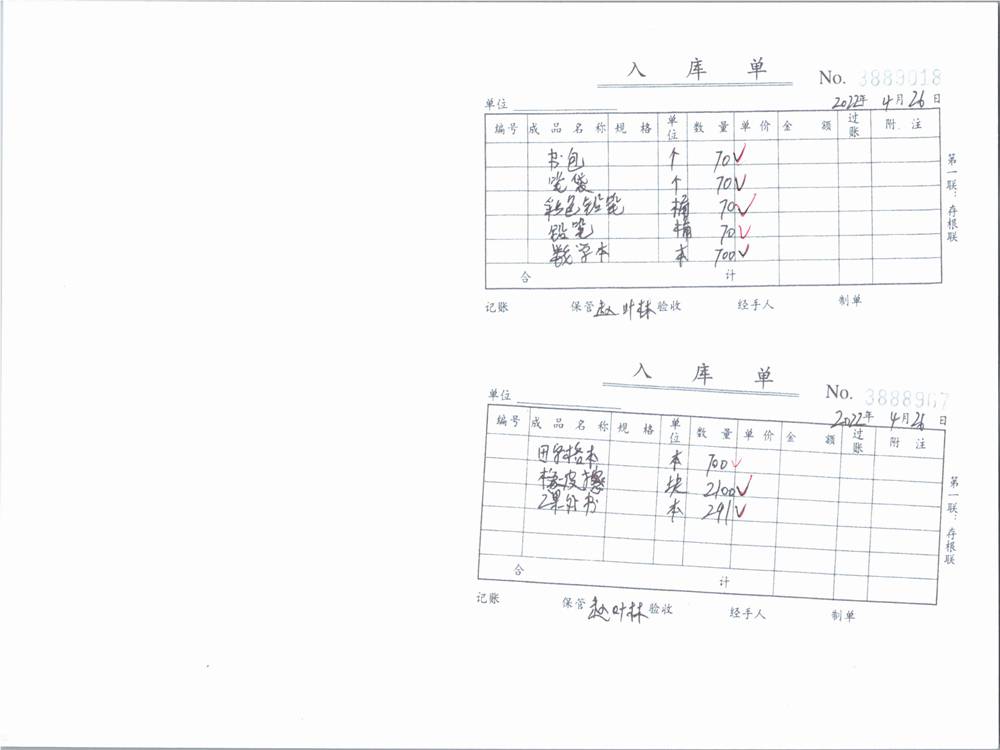 入 库 单
No. 3889018
单位 2022年 4月26日
编号 成品名称 规格 单位 数量 单价 金额 过账 附注
书包 个 70✓
笔袋 个 70✓
彩色铅笔 桶 70✓
铅笔 桶 70✓
数学本 本 700✓
合 计
记账 保管 赵叶林 验收 经手人 制单
第一联：存根联
入 库 单
No. 3888967
单位 2022年 4月26日
编号 成品名称 规格 单位 数量 单价 金额 过账 附注
田字格本 本 700✓
橡皮擦 块 2100✓
课外书 本 291✓
合 计
记账 保管 赵叶林 验收 经手人 制单
第一联：存根联